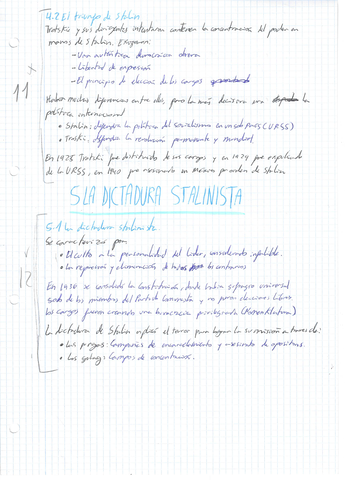 4.2 El triunfo de Stalin
Trotski y sus dirigentes intentaron contener la concentración del poder en
manos de Stalin. Exigieron:
- Una auténtica democracia obrera
- Libertad de expresión
- El principio de elección de los cargos
11
Habían muchas diferencias entre ellos, pero la más decisiva era la
política internacional
• Stalin: defendía la política del socialismo en un solo país (URSS)
• Trotski: defendía la revolución permanente y mundial
En 1925 Trotski fue destituido de sus cargos y en 1929 fue expulsado
de la URSS, en 1940 fue asesinado en México por orden de Stalin
5 LA DICTADURA STALINISTA
5.1 La dictadura stalinista
Se caracterizó por:
• El culto a la personalidad del líder, considerado infalible.
• La represión y eliminación de todos los contrarios
12
En 1936 se consolidó la constitución, donde había sufragio universal
de los miembros del Partido Comunista y no para elecciones libres,
los cargos fueron creando una burocracia privilegiada (Nomenklatura)
La dictadura de Stalin aplicó el terror para lograr la sumisión a través de:
• Las purgas: Campañas de encarcelamiento y asesinato de opositores.
• Los gulag: Campos de concentración.